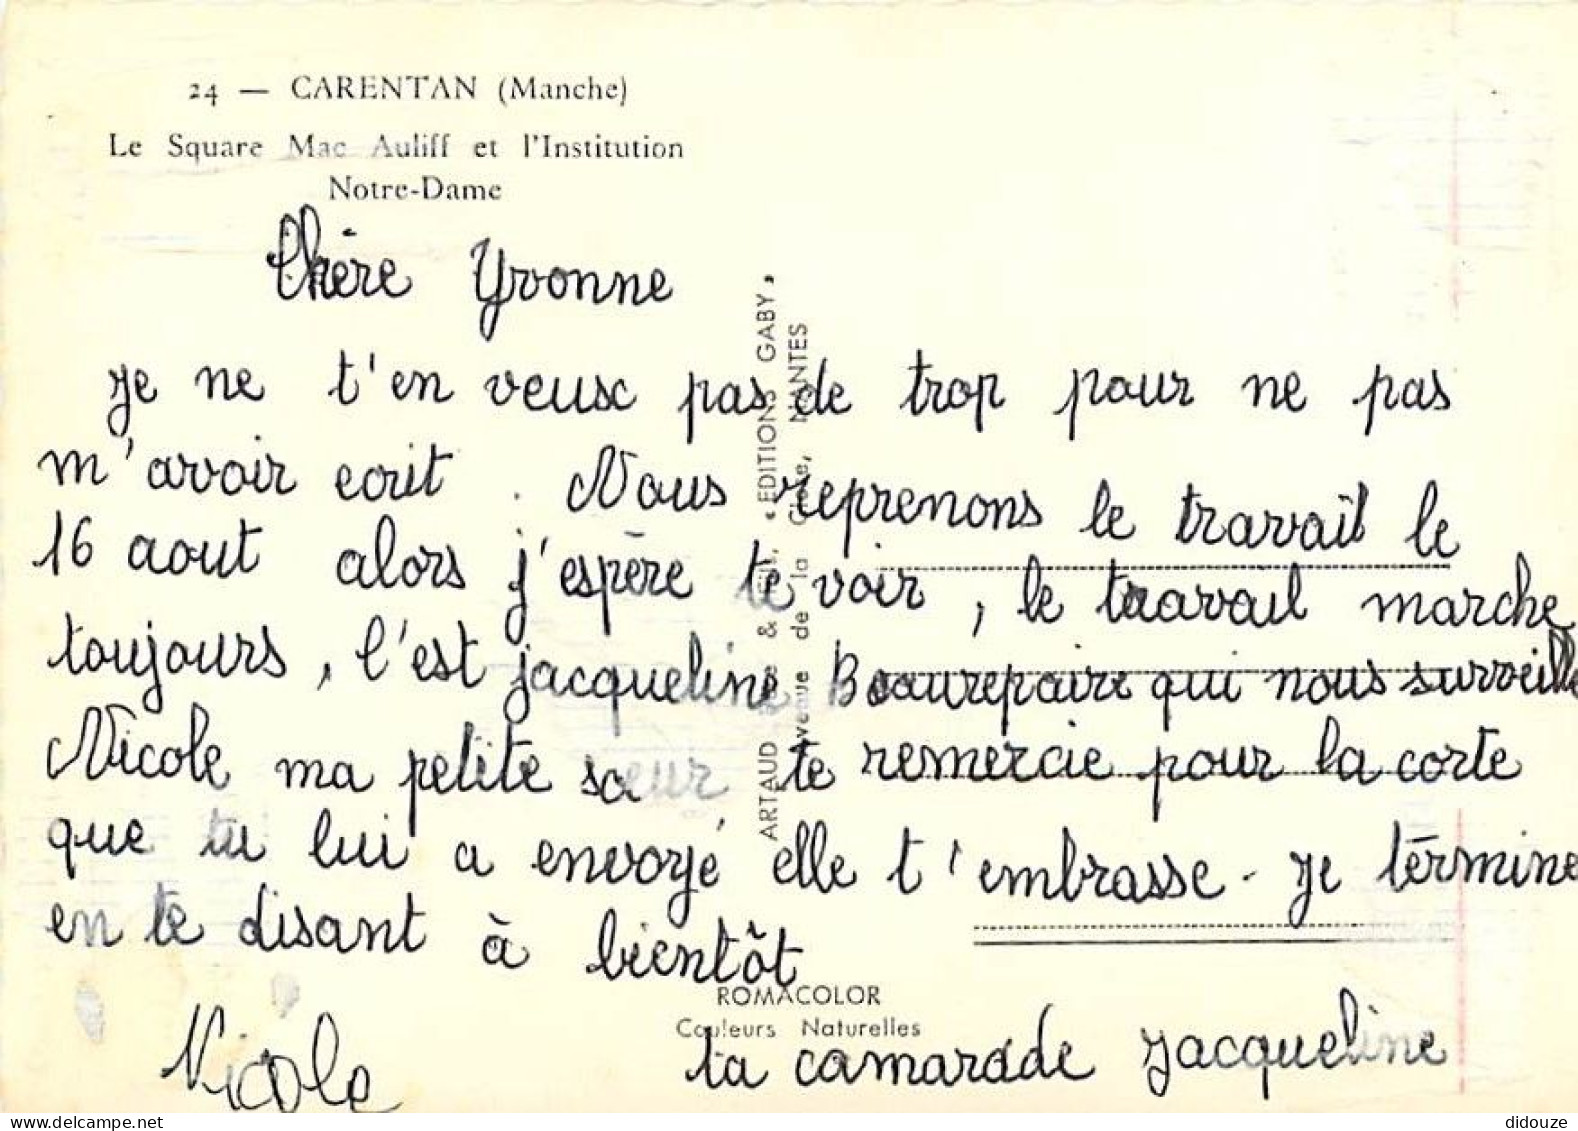 24 — CARENTAN (Manche)
Le Square Mac Auliff et l'Institution
Notre-Dame
Chère Yvonne
je ne t'en veusc pas de trop pour ne pas
m'avoir ecrit. Nous reprenons le travail le
16 aout alors j'espère te voir, le travail marche
toujours, c'est jacqueline Beaurepaire qui nous surveille
Nicole ma petite sœur te remercie pour la carte
que tu lui a envoyé elle t'embrasse. je termine
en te disant à bientôt
Nicole
ta camarade Jacqueline
ARTAUD & « EDITIONS GABY »
avenue de la NANTES
ROMACOLOR
Couleurs Naturelles
didouze